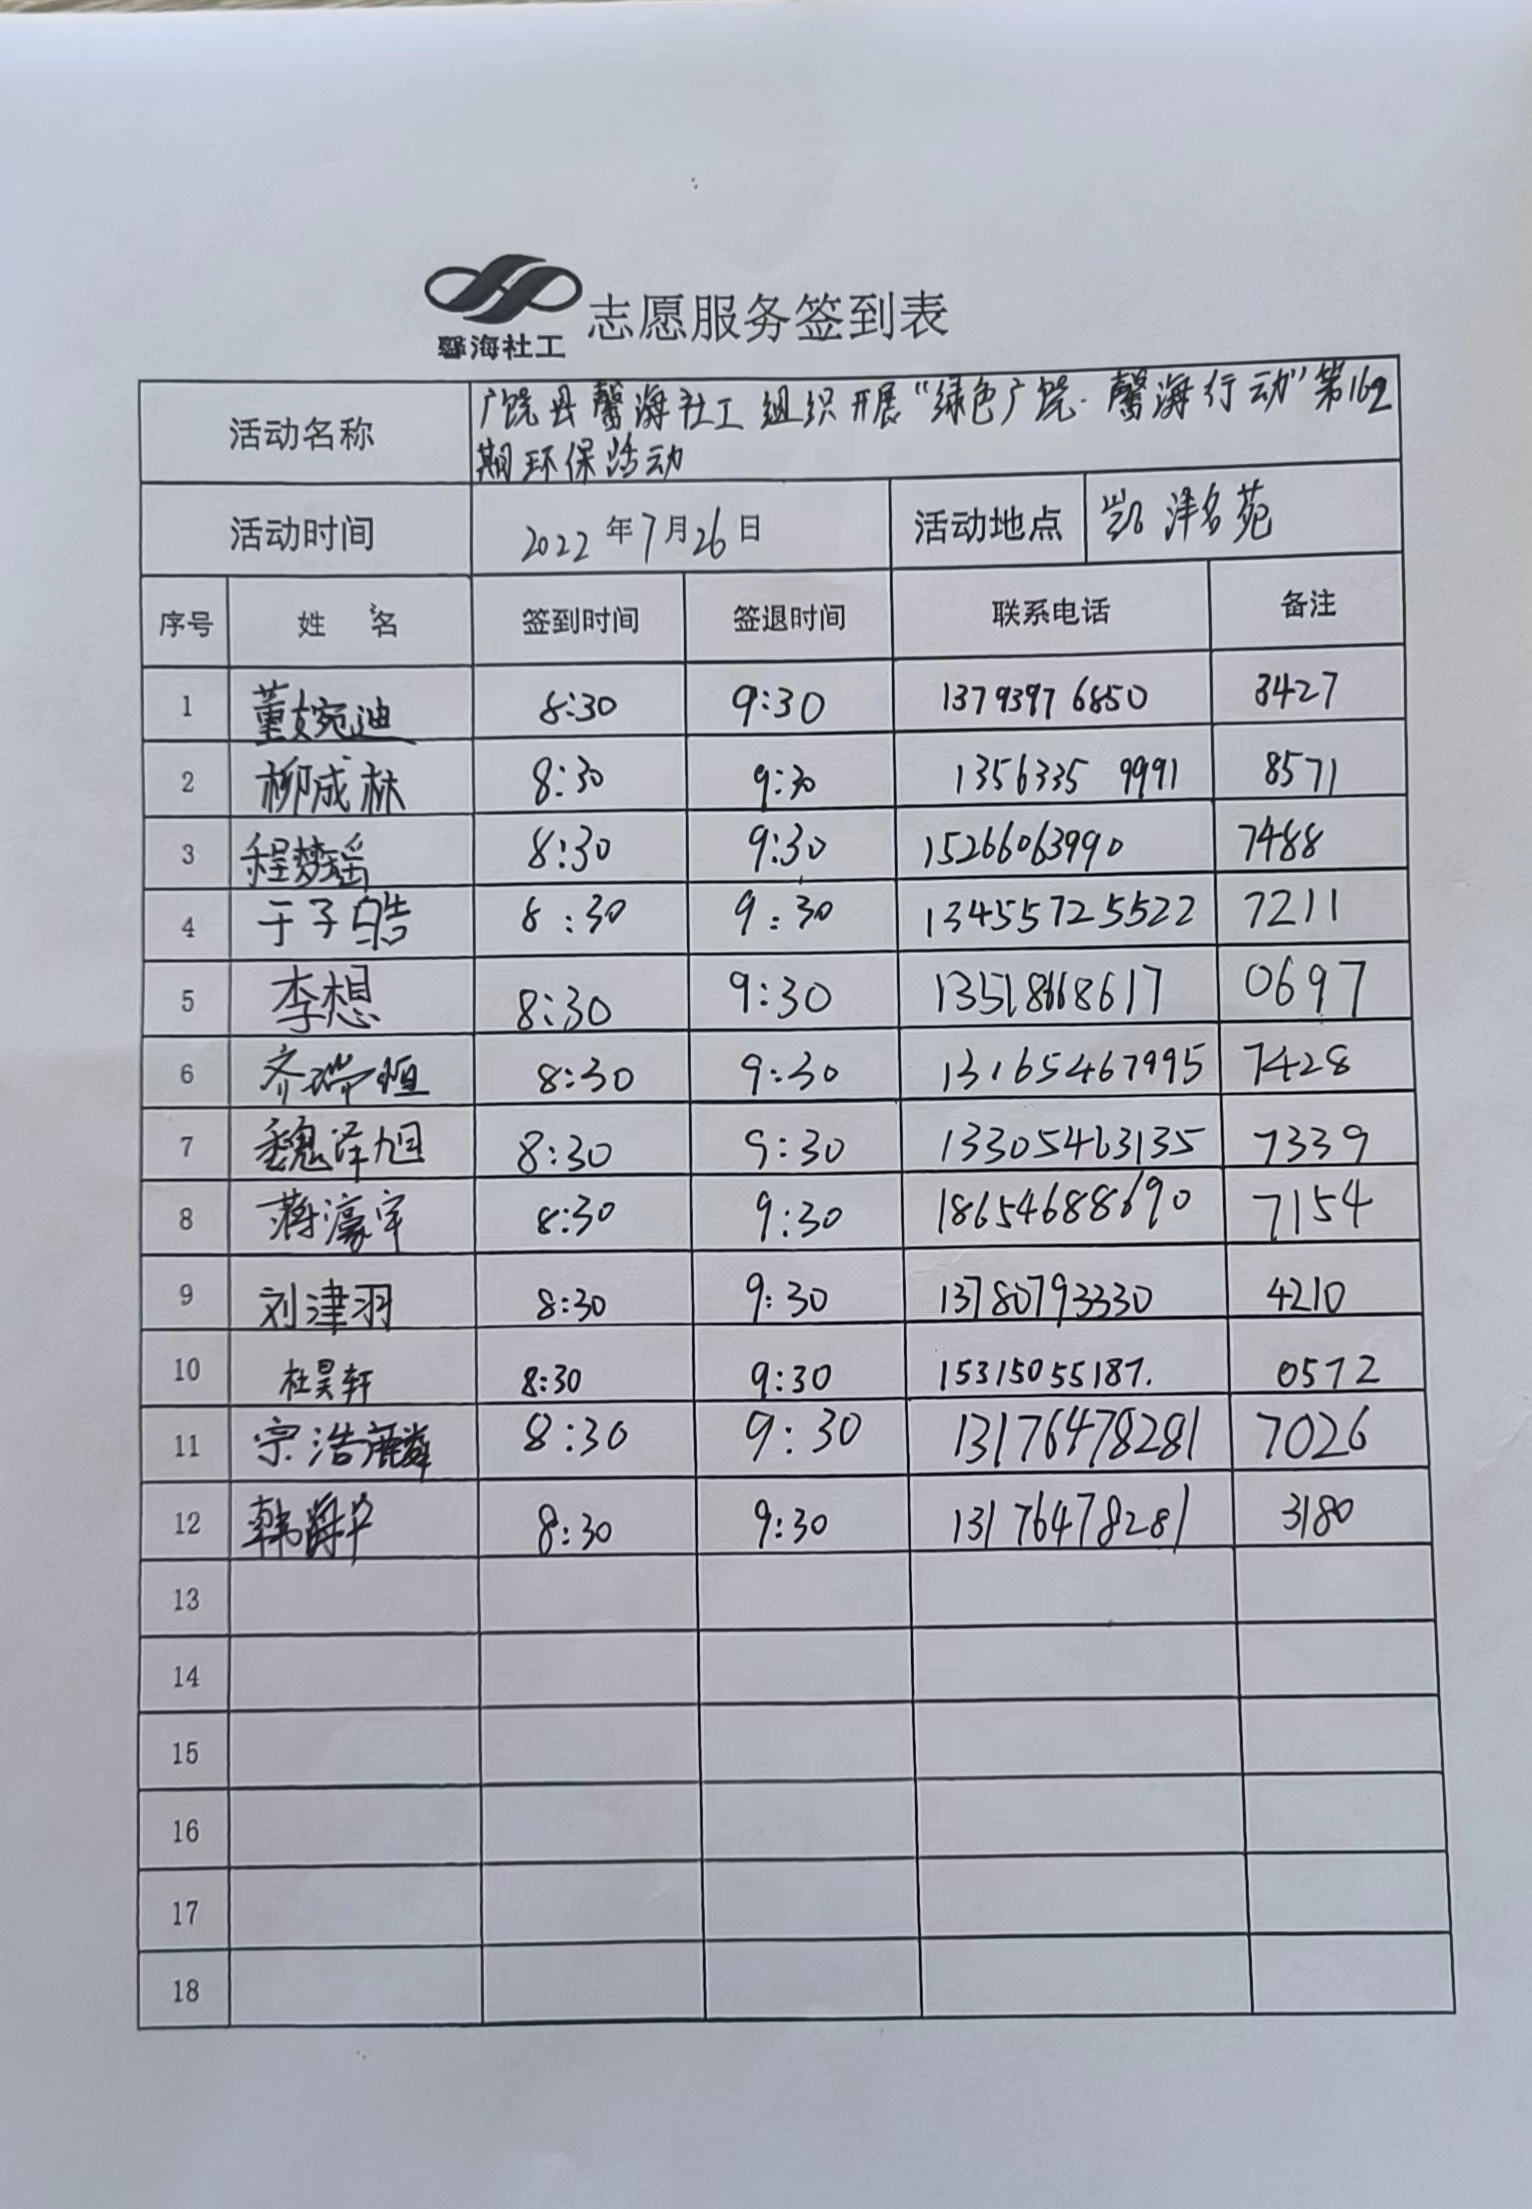 馨海社工 志愿服务签到表
活动名称 广饶县馨海社工组织开展“绿色广饶·馨海行动”第162
期环保活动
活动时间 2022年7月26日 活动地点 凯泽名苑
序号 姓 名 签到时间 签退时间 联系电话 备注
1 董婉迪 8:30 9:30 13793976850 3427
2 柳成林 8:30 9:30 1356335 9991 8571
3 程梦瑶 8:30 9:30 15266063990 7488
4 于子皓 8:30 9:30 13455725522 7211
5 李想 8:30 9:30 13518668617 0697
6 齐瑞恒 8:30 9:30 13165467995 7428
7 魏泽旭 8:30 9:30 13305463135 7339
8 蒋濠宇 8:30 9:30 18654688690 7154
9 刘津羽 8:30 9:30 13780793330 4210
10 杜昊轩 8:30 9:30 15315055187. 0572
11 宗浩麟 8:30 9:30 13176478281 7026
12 韩 8:30 9:30 13176478281 3180
13
14
15
16
17
18